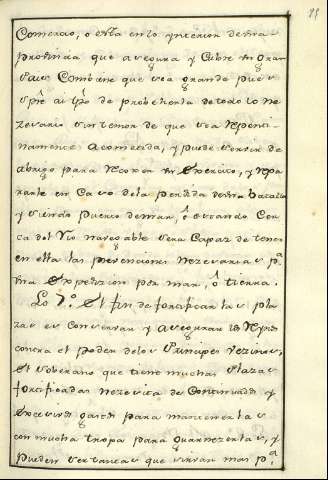 Comercio, o esta en lo ynterior de una
provincia que asegura y Cubre un gran
Pais Combiene que sea grande pues
spre ai tpo de probeherla de todo lo ne
zesario sin temor de que sea Repenti
namente acometida, y puede servir de
abrigo para Recoxer un Exercito, y Repa
rarle en Caso de la perdida de una batalla
y siendo Puerto de mar, ô estando Cer
ca del Rio navegable sera Capaz de tener
en ella las prevenciones nezesarias pa
una Expedizion por mar, ô tierra.
Lo 7º El fin de fortificar las pla
zas es Conservar y asegurar los Reynos
contra el poder de los Principes vezinos,
El soberano que tiene muchas Plazas
fortificadas nezesita de Continuados y
Excesivos gastos para mantenerlas
con mucha tropa para guarnezerlas, y
pueden ser tantas que sirvan mas pa